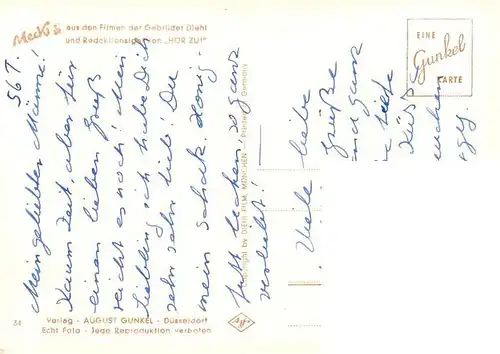 Mecki
aus den Filmen der Gebrüder Diehl
und Redaktionsigel von „HÖR ZU!"
EINE
Gunkel
KARTE
567.
Mein geliebter Männe!
Kaum Zeit, aber für
einen lieben Gruß
reicht es noch! Mein
Liebling ich habe Dich
sehr sehr lieb! Du
mein Schatz. Honig-
ganz
verliebt!
Viele liebe
Grüße
und ganz
Copyright by DIEHL-FILM, MÜNCHEN Printed Germany
34
Verlag - AUGUST GUNKEL - Düsseldorf
Echt Foto - Jede Reproduktion verboten